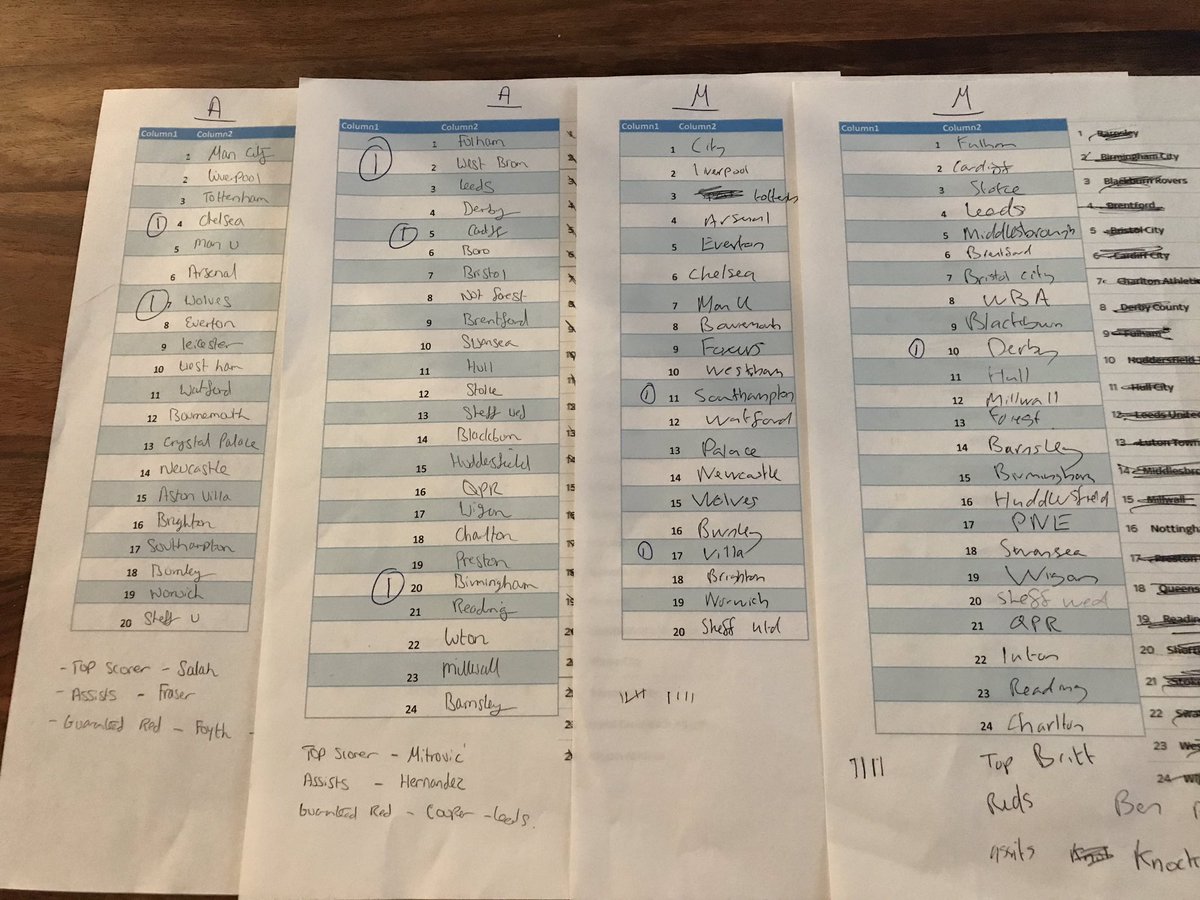 A
Column1 Column2
1 Man City
2 Liverpool
3 Tottenham
① 4 Chelsea
5 Man U
6 Arsenal
① 7 Wolves
8 Everton
9 leicester
10 West ham
11 Watford
12 Bournemouth
13 Crystal Palace
14 Newcastle
15 Aston Villa
16 Brighton
17 Southampton
18 Burnley
19 Norwich
20 Sheff U
- Top Scorer - Salah
- Assists - Fraser
- Guaranteed Red - Foyth -
A
Column1 Column2
1 Fulham
① 2 West Brom
3 Leeds
4 Derby
① 5 Cardiff
6 Boro
7 Bristol
8 Not forest
9 Brentford
10 Swansea
11 Hull
12 Stoke
13 Sheff wed
14 Blackburn
15 Huddersfield
16 QPR
17 Wigan
18 Charlton
19 Preston
① 20 Birmingham
21 Reading
22 Luton
23 Millwall
24 Barnsley
Top Scorer - Mitrović
Assists - Hernandez
Guaranteed Red - Cooper - Leeds.
M
Column1 Column2
1 City
2 Liverpool
3
4 Arsenal
5 Everton
6 Chelsea
7 Man U
8 Bournemouth
9
10 Westham
① 11 Southampton
12 Watford
13 Palace
14 Newcastle
15 Wolves
16 Burnley
① 17 Villa
18 Brighton
19 Norwich
20 Sheff Utd
M
Column1 Column2
1 Fulham
2 Cardiff
3 Stoke
4 Leeds
5 Middlesbrough
6 Brentford
7 Bristol city
8 WBA
9 Blackburn
① 10 Derby
11 Hull
12 Millwall
13 Forest
14 Barnsley
15 Birmingham
16 Huddersfield
17 PNE
18 Swansea
19 Wigan
20 Sheff wed
21 QPR
22 luton
23 Reading
24 Charlton
Top Britt
Reds Ben
assits Knock
1 Barnsley
2 Birmingham City
3 Blackburn Rovers
4 Brentford
5 Bristol City
6 Cardiff City
7 Charlton Athletic
8 Derby County
9 Fulham
10 Huddersfield T
11 Hull City
12 Leeds United
13 Luton Town
14 Middlesbro
15 Millwall
16 Nottingh
17 Preston
18 Queens
19 Readin
20 Sheff
21 Stok
22 Swa
23 Wes
24 Wi